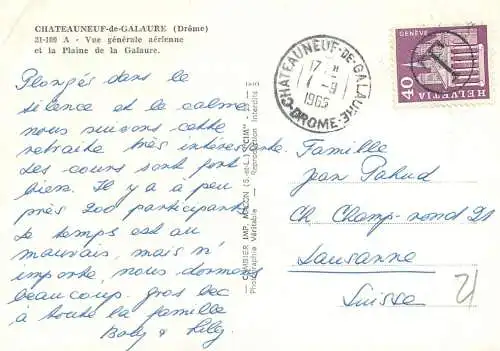 CHATEAUNEUF-de-GALAURE (Drôme)
21-100 A - Vue générale aérienne
et la Plaine de la Galaure.
Plongés dans le
silence et le calme
nous suivons cette
retraite très intéressante.
Les cours sont fort
bien. Il y a à peu
près 200 participants
Le temps est au
mauvais, mais n'
importe, nous dormons
beaucoup. Gros bec
à toute la famille
Boby & Lily
— COMBIER IMP. MACON (S.-et-L.) "CIM" —
Photographie Véritable - Reproduction Interdite
CHATEAUNEUF-DE-GALAURE
17 H
1965
DROME
GENÈVE
40
HELVETIA
T
Famille
Jean Pahud
Ch. Champ-rond 21
Lausanne
Suisse
21